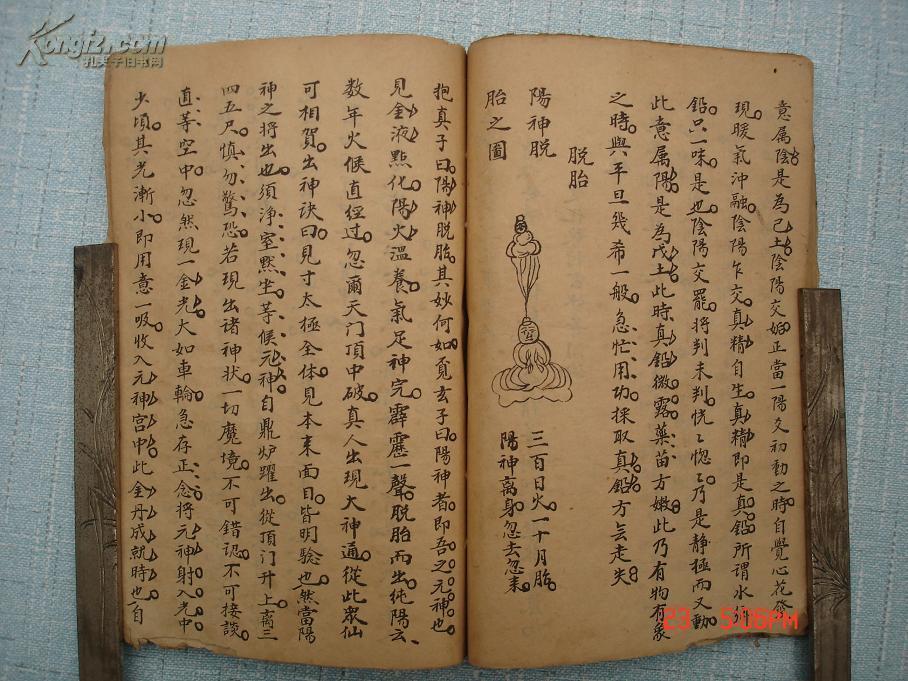 意属陰是為己土陰陽交姤正當一陽爻初動之時自覺心花發
現暖氣沖融陰陽乍交真精自生真精即是真鉛所謂水鄉
鉛只一味是也陰陽交罷將判未判恍〻惚〻乃是静極而又動
此意属陽是為戊土此時真鉛微露薬苗方嫩此乃有物有象
之時與平旦幾希一般急忙用功採取真鉛方无走失
脱胎
陽神脱
胎之圖
三百日火一十月胎
陽神离身忽去忽来
抱真子曰陽神脱胎其妙何如覓玄子曰陽神者即吾之元神也
見金液點化陽火温養氣足神完霹靂一聲脱胎而出純陽云
数年火候直徑过忽爾天门頂中破真人出現大神通從此衆仙
可相賀出神訣曰見寸太極全体見本来面目皆明驗也然當陽
神之将出也須浄室黙坐等候元神自鼎炉躍出從頂门升上离三
四五尺慎勿驚恐若現出诸神状一切魔境不可錯認不可接談
直等空中忽然現一金光大如車輪急存正念将元神射入光中
少頃其光漸小即用意一吸收入元神宫中此金丹成就時也自
Kongfz.com
孔夫子旧书网
23 5:06PM